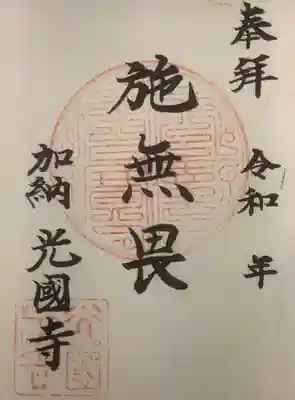 奉拜
令和 年
施無畏
加納 光國寺